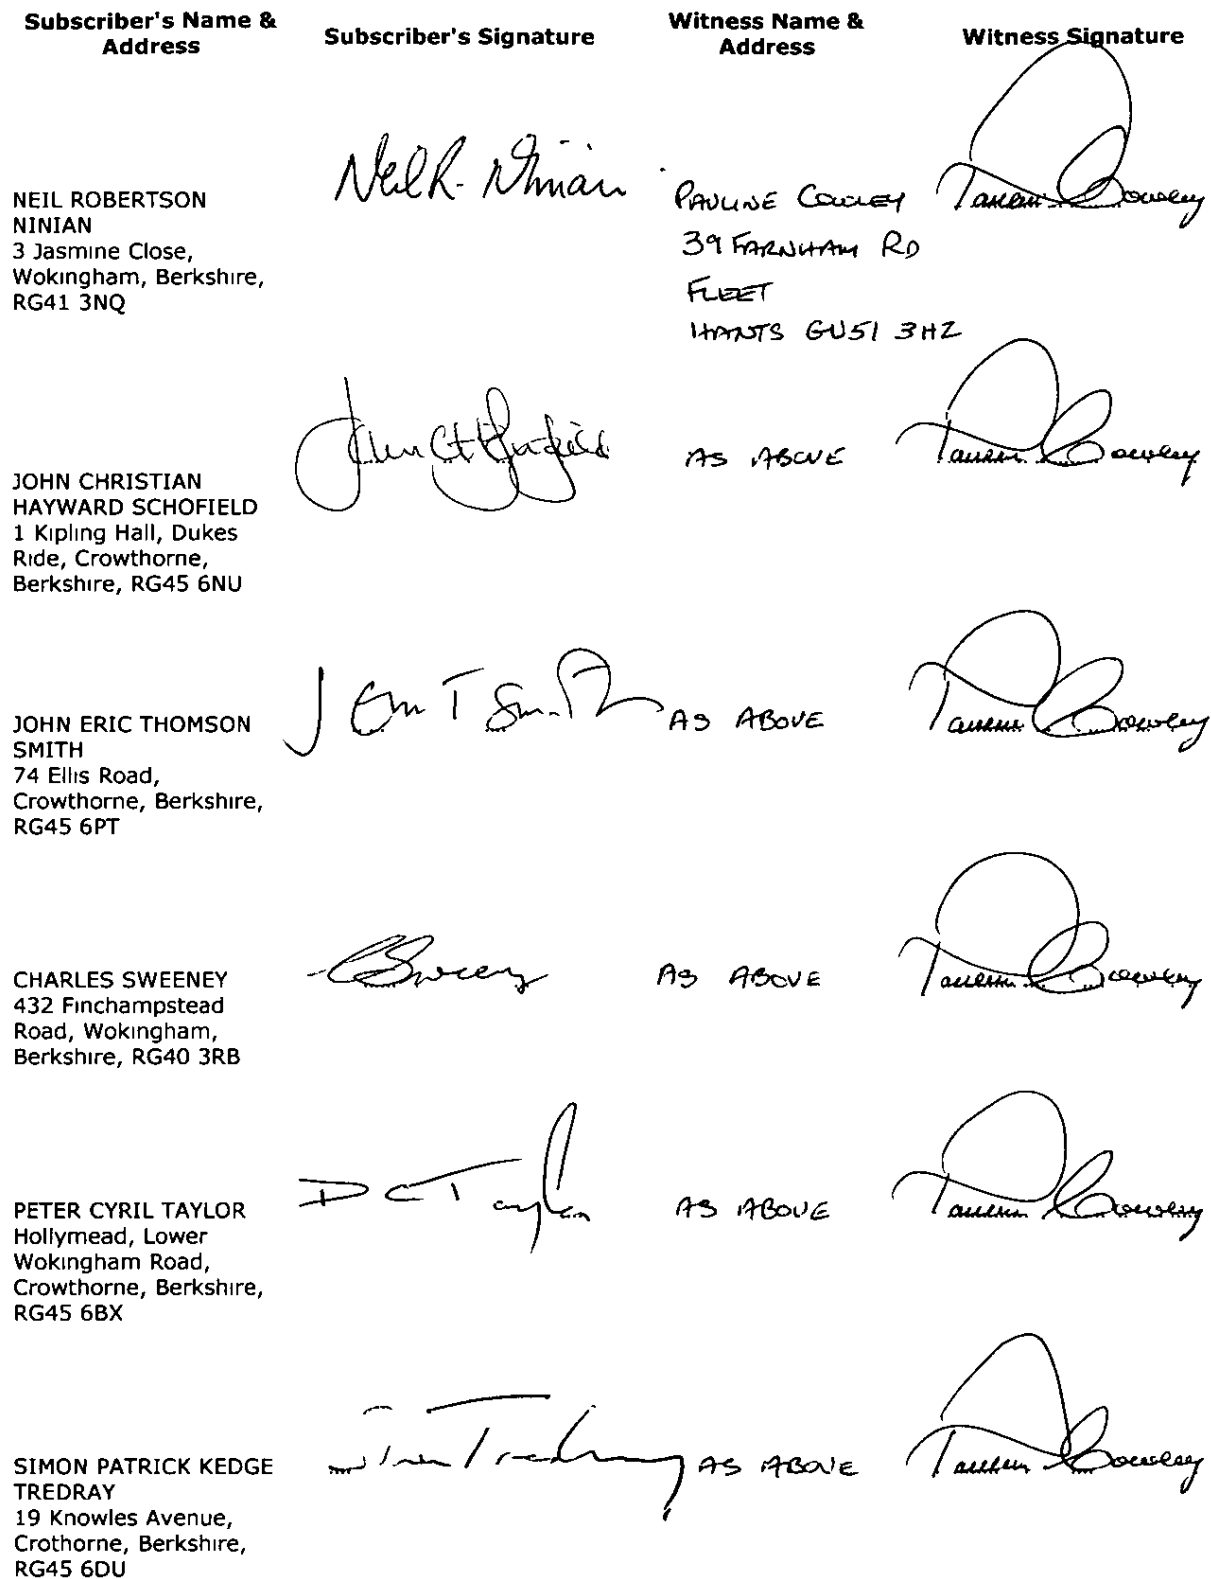 Subscriber's Name &
Address
Subscriber's Signature
Witness Name &
Address
Witness Signature
NEIL ROBERTSON
NINIAN
3 Jasmine Close,
Wokingham, Berkshire,
RG41 3NQ
Neil R. Ninian
PAULINE COWLEY
39 FARNHAM RD
FLEET
HANTS GU51 3HZ
Cowley
JOHN CHRISTIAN
HAYWARD SCHOFIELD
1 Kipling Hall, Dukes
Ride, Crowthorne,
Berkshire, RG45 6NU
AS ABOVE
Cowley
JOHN ERIC THOMSON
SMITH
74 Ellis Road,
Crowthorne, Berkshire,
RG45 6PT
J Eric T Smith
AS ABOVE
Cowley
CHARLES SWEENEY
432 Finchampstead
Road, Wokingham,
Berkshire, RG40 3RB
C Sweeney
AS ABOVE
Cowley
PETER CYRIL TAYLOR
Hollymead, Lower
Wokingham Road,
Crowthorne, Berkshire,
RG45 6BX
P C Taylor
AS ABOVE
Cowley
SIMON PATRICK KEDGE
TREDRAY
19 Knowles Avenue,
Crothorne, Berkshire,
RG45 6DU
Simon Tredray
AS ABOVE
Cowley